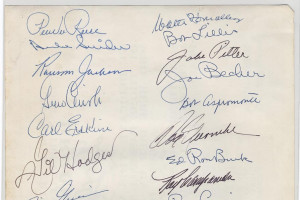 Pee Wee Reese
Duke Snider
Ransom Jackson
Gino Cimoli
Carl Erskine
Gil Hodges
Walter
Bob Lillis
Jake Pitler
Joe Becker
Bob Aspromonte
Don Newcombe
Ed Roebuck
Roy Campanella